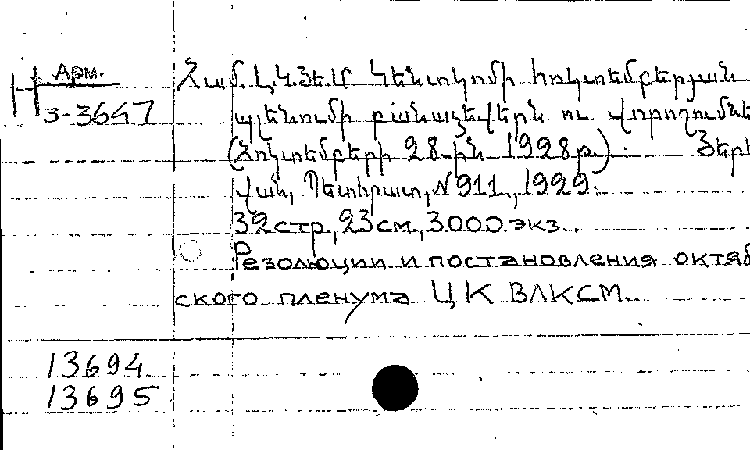 Арм.
Н
3-3647
Համ. Լ.Կ.ՅԵ.Մ Կենտկոմի հոկտեմբերյան
պլենումի բանաձեվերն ու վորոշումնե
(Հոկտեմբերի 28-ին 1928թ.) Յերե
վան, Պետհրատ, N 911, 1929.
32 стр, 23 см, 3.000 экз.
Резолюции и постановления октяб
ского пленума ЦК ВЛКСМ.
13694
13695